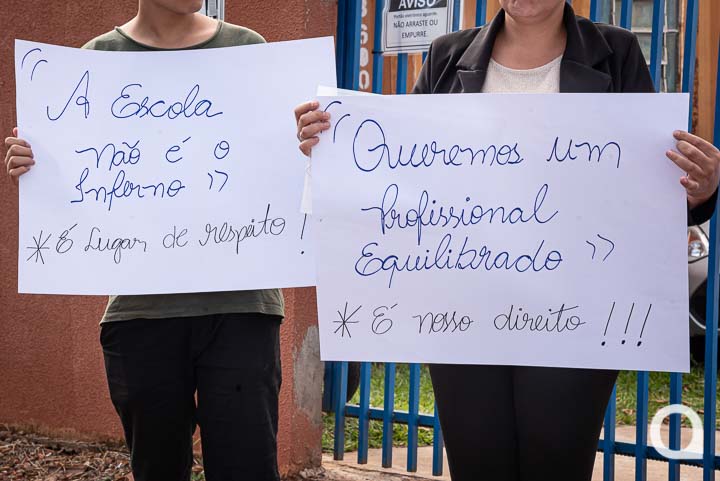 AVISO
NÃO ARRASTE OU
EMPURRE.
" A Escola
não é o
Inferno "
* É Lugar de respeito!
" Queremos um
Profissional
Equilibrado "
* É nosso direito !!!